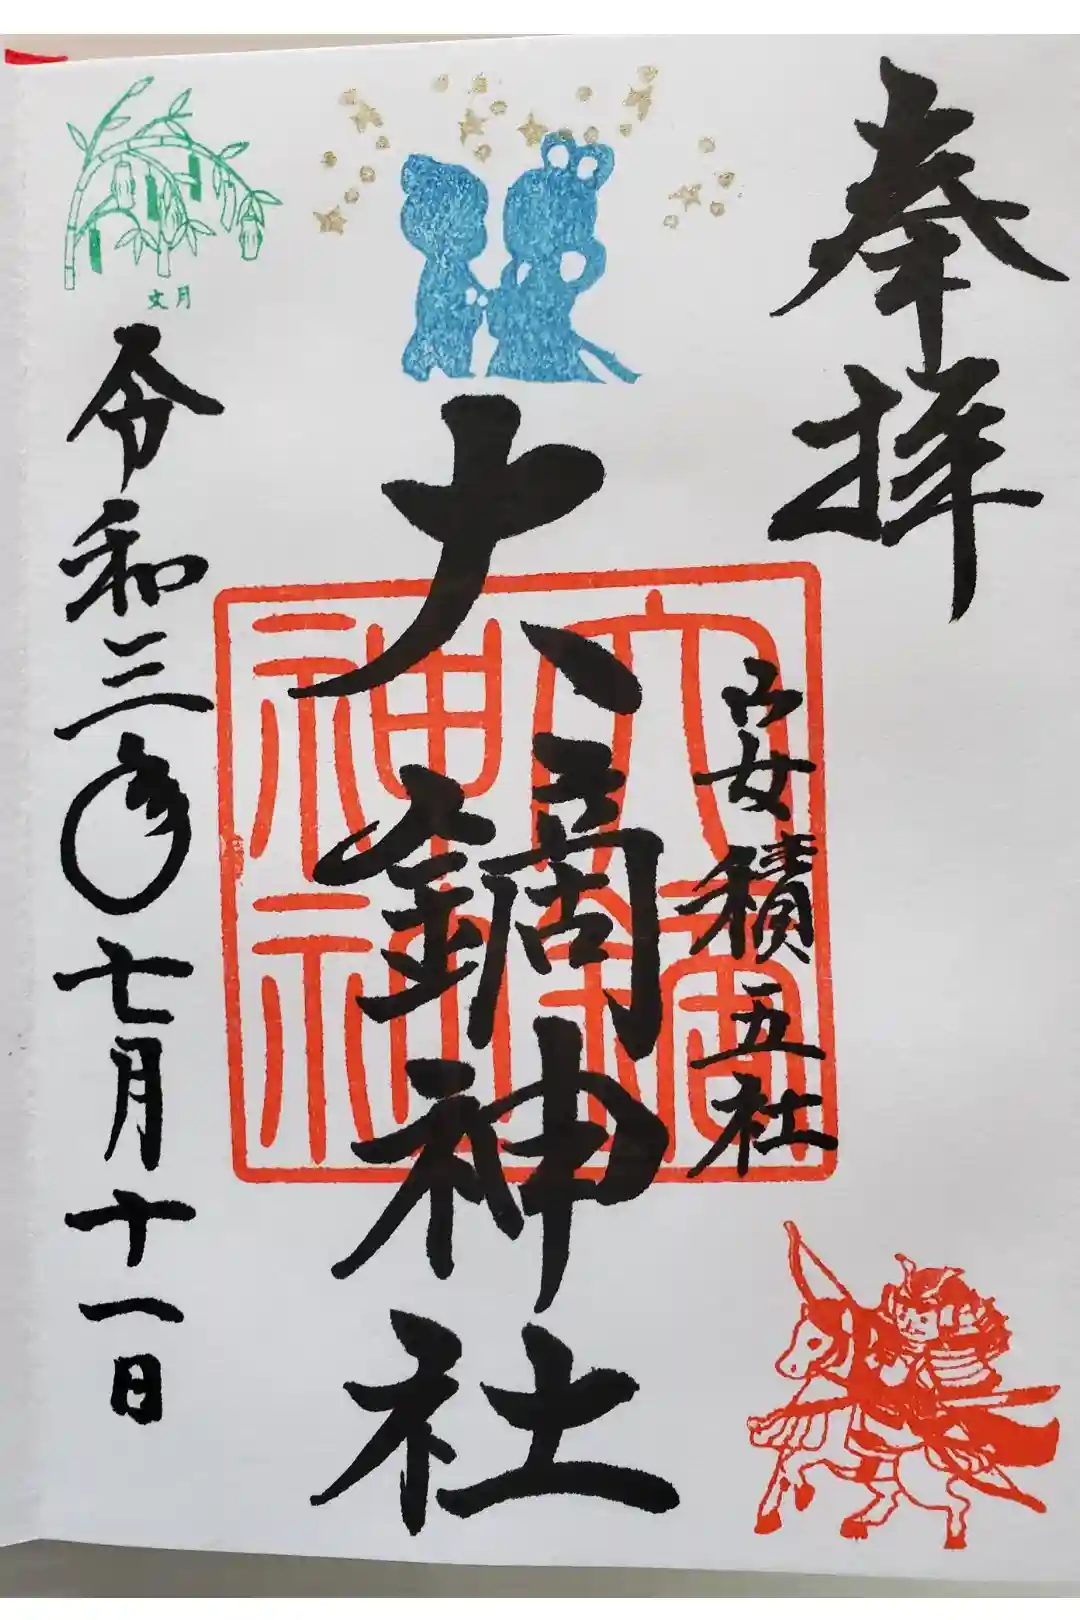 奉拝
安積五社
大鏑神社
令和三年七月十一日
文月